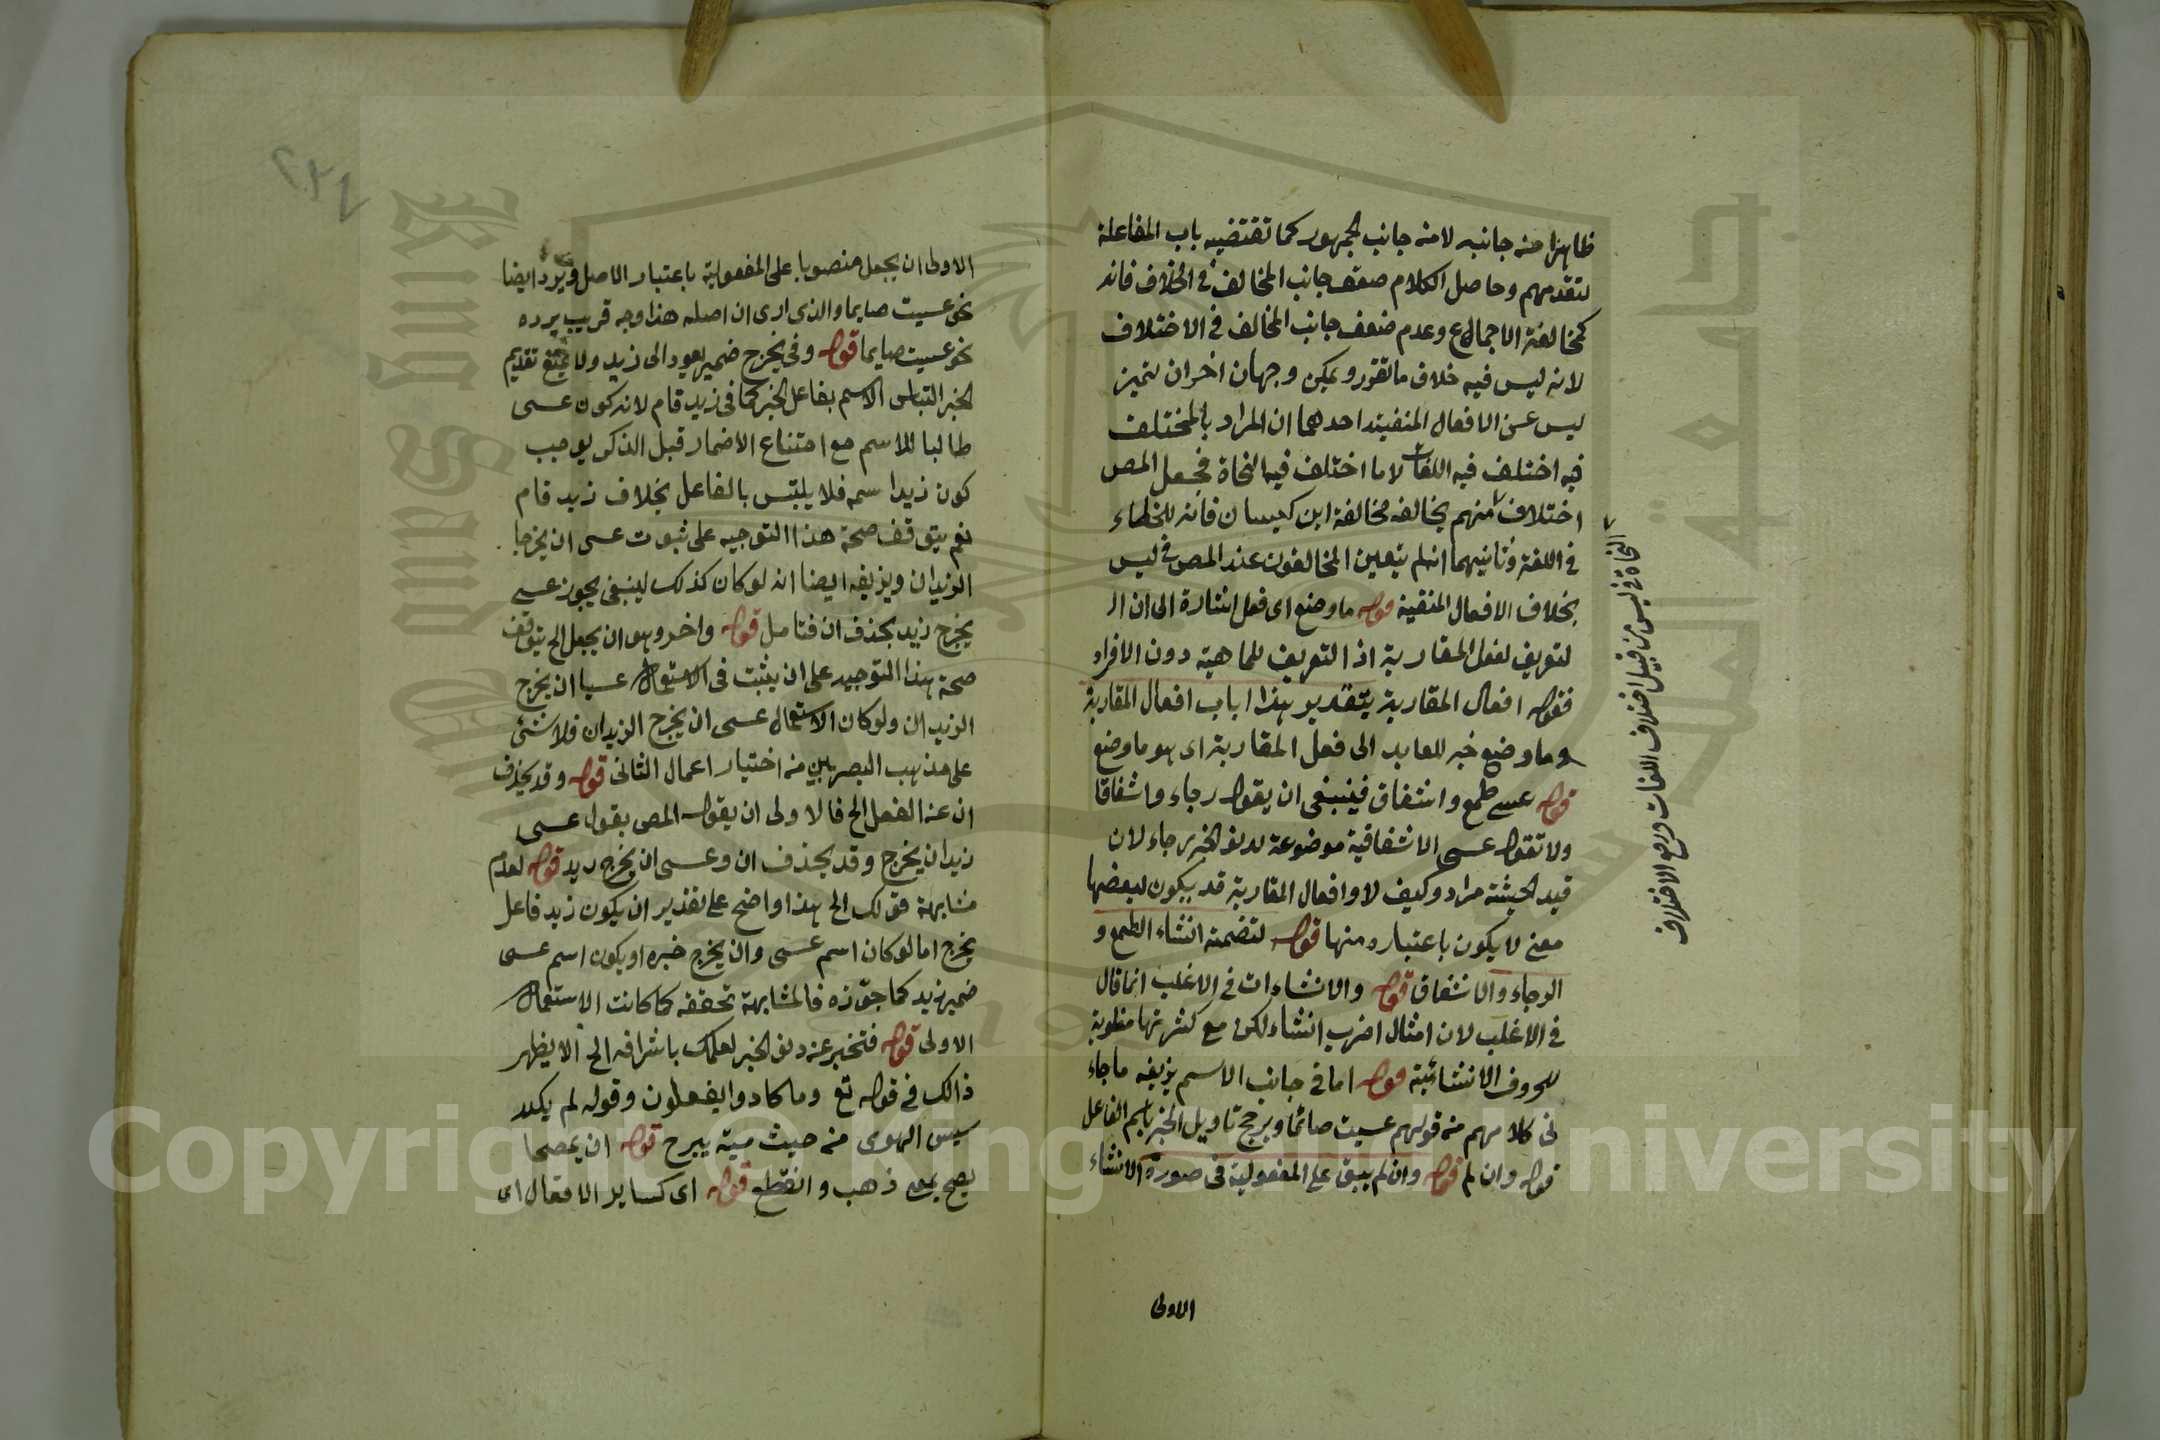 ظاهرا منه جانبه لا منه جانب الجمهور كما تقتضيه باب المفاعلة
لتقدمهم وحاصل الكلام ضعف جانب المخالف في الخلاف فانه
كمخالفة الاجماع وعدم ضعف جانب المخالف في الاختلاف
لانه ليس فيه خلاف ما تقرر ويمكن وجهان اخران لتميز
ليس عن الافعال المنفية احدهما ان المراد بالمختلف
فيه اختلف فيه اللغات لا ما اختلف فيه النحاة فجعل المص
اختلاف منهم يخالفه مخالفة ابن كيسان فانه للخطاء
في اللغة وثانيهما انه لم يتعين المخالفون عند المص في ليس
بخلاف الافعال المنفية قوله ما وضع اى فعل اشارة الى ان الـ
لتعريف لفعل المقاربة اذ التعريف للماهية دون الافراد
فقوله افعال المقاربة بتقدير هذا باب افعال المقاربة
وما وضع خبر للعايد الى فعل المقاربة اى هو ما وضع
قوله عسى طمع واشفاق فينبغى ان يقول رجاء واشفاقا
ولا تقول عسى الاشفاقية موضوعة لدنو الخبر رجاء لان
قيد الحيثية مراد وكيف لا وافعال المقاربة قد يكون لبعضها
معنى لا يكون باعتباره منها قوله لتضمنه انشاء الطمع و
الرجاء والاشفاق قوله والانشاءات في الاغلب انما قال
في الاغلب لان امثال اضرب انشاء لكن مع كثرتها مغلوبة
للحروف الانشائية قوله اما في جانب الاسم يزيفه ما جاء
في كلامهم من قولهم عسيت صائما ويرجح تاويل الخبر باسم الفاعل
قوله وان لم قوله وان لم يبق على المفعولية في صورة الانشاء
النحاة في ليس من قبيل اختلاف اللغات ومع الاختلاف
الاولى
٢٣٤
الاولى ان يجعل منصوبا على المفعولية باعتبار الاصل ويرد ايضا
نحو عسيت صايما والذى ارى ان اصله هذا وجه قريب يرده
نحو عسيت صايما قوله وفى يخرج ضمير يعود الى زيد ولا يمتنع تقديم
الخبر التباس الاسم بفاعل الخبر كما فى زيد قام لانه كون عسى
طالبا للاسم مع امتناع الاضمار قبل الذكر يوجب
كون زيدا سمه فلا يلتبس بالفاعل بخلاف زيد قام
نعم يتوقف صحة هذا التوجيه على ثبوت عسى ان يخرجا
الزيدان ويزيفه ايضا انه لو كان كذلك لينبغى يجوز عسى
يخرج زيد بحذف ان فتامل قوله واخر وهو ان يجعل الخ يتوقف
صحة هذا التوجيه على ان يثبت فى الاستعمال عسيا ان يخرج
الزيدان ولو كان الاستعمال عسى ان يخرج الزيدان فلا شئ
على مذهب البصريين من اختيار اعمال الثانى قوله وقد يحذف
ان عن الفعل الخ فالاولى ان يقول المص بقول عسى
زيد ان يخرج وقد يحذف ان وعسى ان يخرج زيد قوله لعدم
مشابهة قولك الخ هذا واضح على تقدير ان يكون زيد فاعل
يخرج اما لو كان اسم عسى وان يخرج خبره او يكون اسم عسى
ضمير زيد كما جوزه فالمشابهة تحققه كما كانت الاستعمال
الاولى قوله فتخبر عن دنو الخبر لعلمك باشرافه الخ الا يظهر
ذالك في قوله تع وما كادوا يفعلون وقوله لم يكد
سيس الهوى من حيث مية يبرح قوله ان يمصحا
يصح بمعنى ذهب وانقطع قوله اى كساير الافعال اى
Copyright © King Saud University